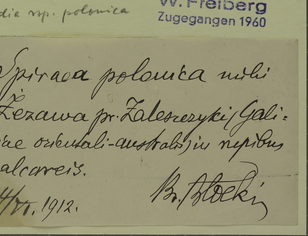 dia ssp. polonica
W. Freiberg
Zugegangen 1960
Spiraea polonica mihi
Żezawa pr. Zaleszczyki (Gali-
iae orientali-australis) in rupibus
alcareis.
1912.
Br. Błocki